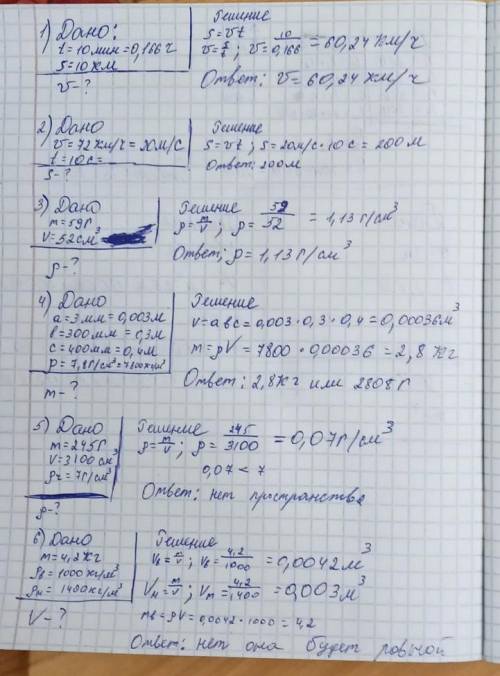 1) Дано:
t=10мин=0,166ч
S=10км
v-?
Решение
S=vt
v=S/t; v=10/0,166=60,24км/ч
Ответ: v=60,24км/ч
2) Дано
v=72км/ч=20м/с
t=10с=
S-?
Решение
S=vt; S=20м/с·10с=200м
Ответ: 200м
3) Дано
m=59г
V=52см³
ρ-?
Решение
ρ=m/V; ρ=59/52=1,13г/см³
Ответ; ρ=1,13г/см³
4) Дано
a=3мм=0,003м
b=300мм=0,3м
c=400мм=0,4м
ρ=7,8г/см³=7800кг/м³
m-?
Решение
V=abc=0,003·0,3·0,4=0,00036м³
m=ρV=7800·0,00036=2,8кг
Ответ: 2,8кг или 2808г
5) Дано
m=245г
V=3100см³
ρч=7г/см³
ρ-?
Решение
ρ=m/V; ρ=245/3100=0,07г/см³
0,07<7
Ответ: нет пространства
6) Дано
m=4,2кг
ρв=1000кг/м³
ρм=1400кг/м³
V-?
Решение
Vв=m/V; Vв=4,2/1000=0,0042м³
Vм=m/V; Vм=4,2/1400=0,003м³
mв=ρV=0,0042·1000=4,2
Ответ: нет она будет ровной